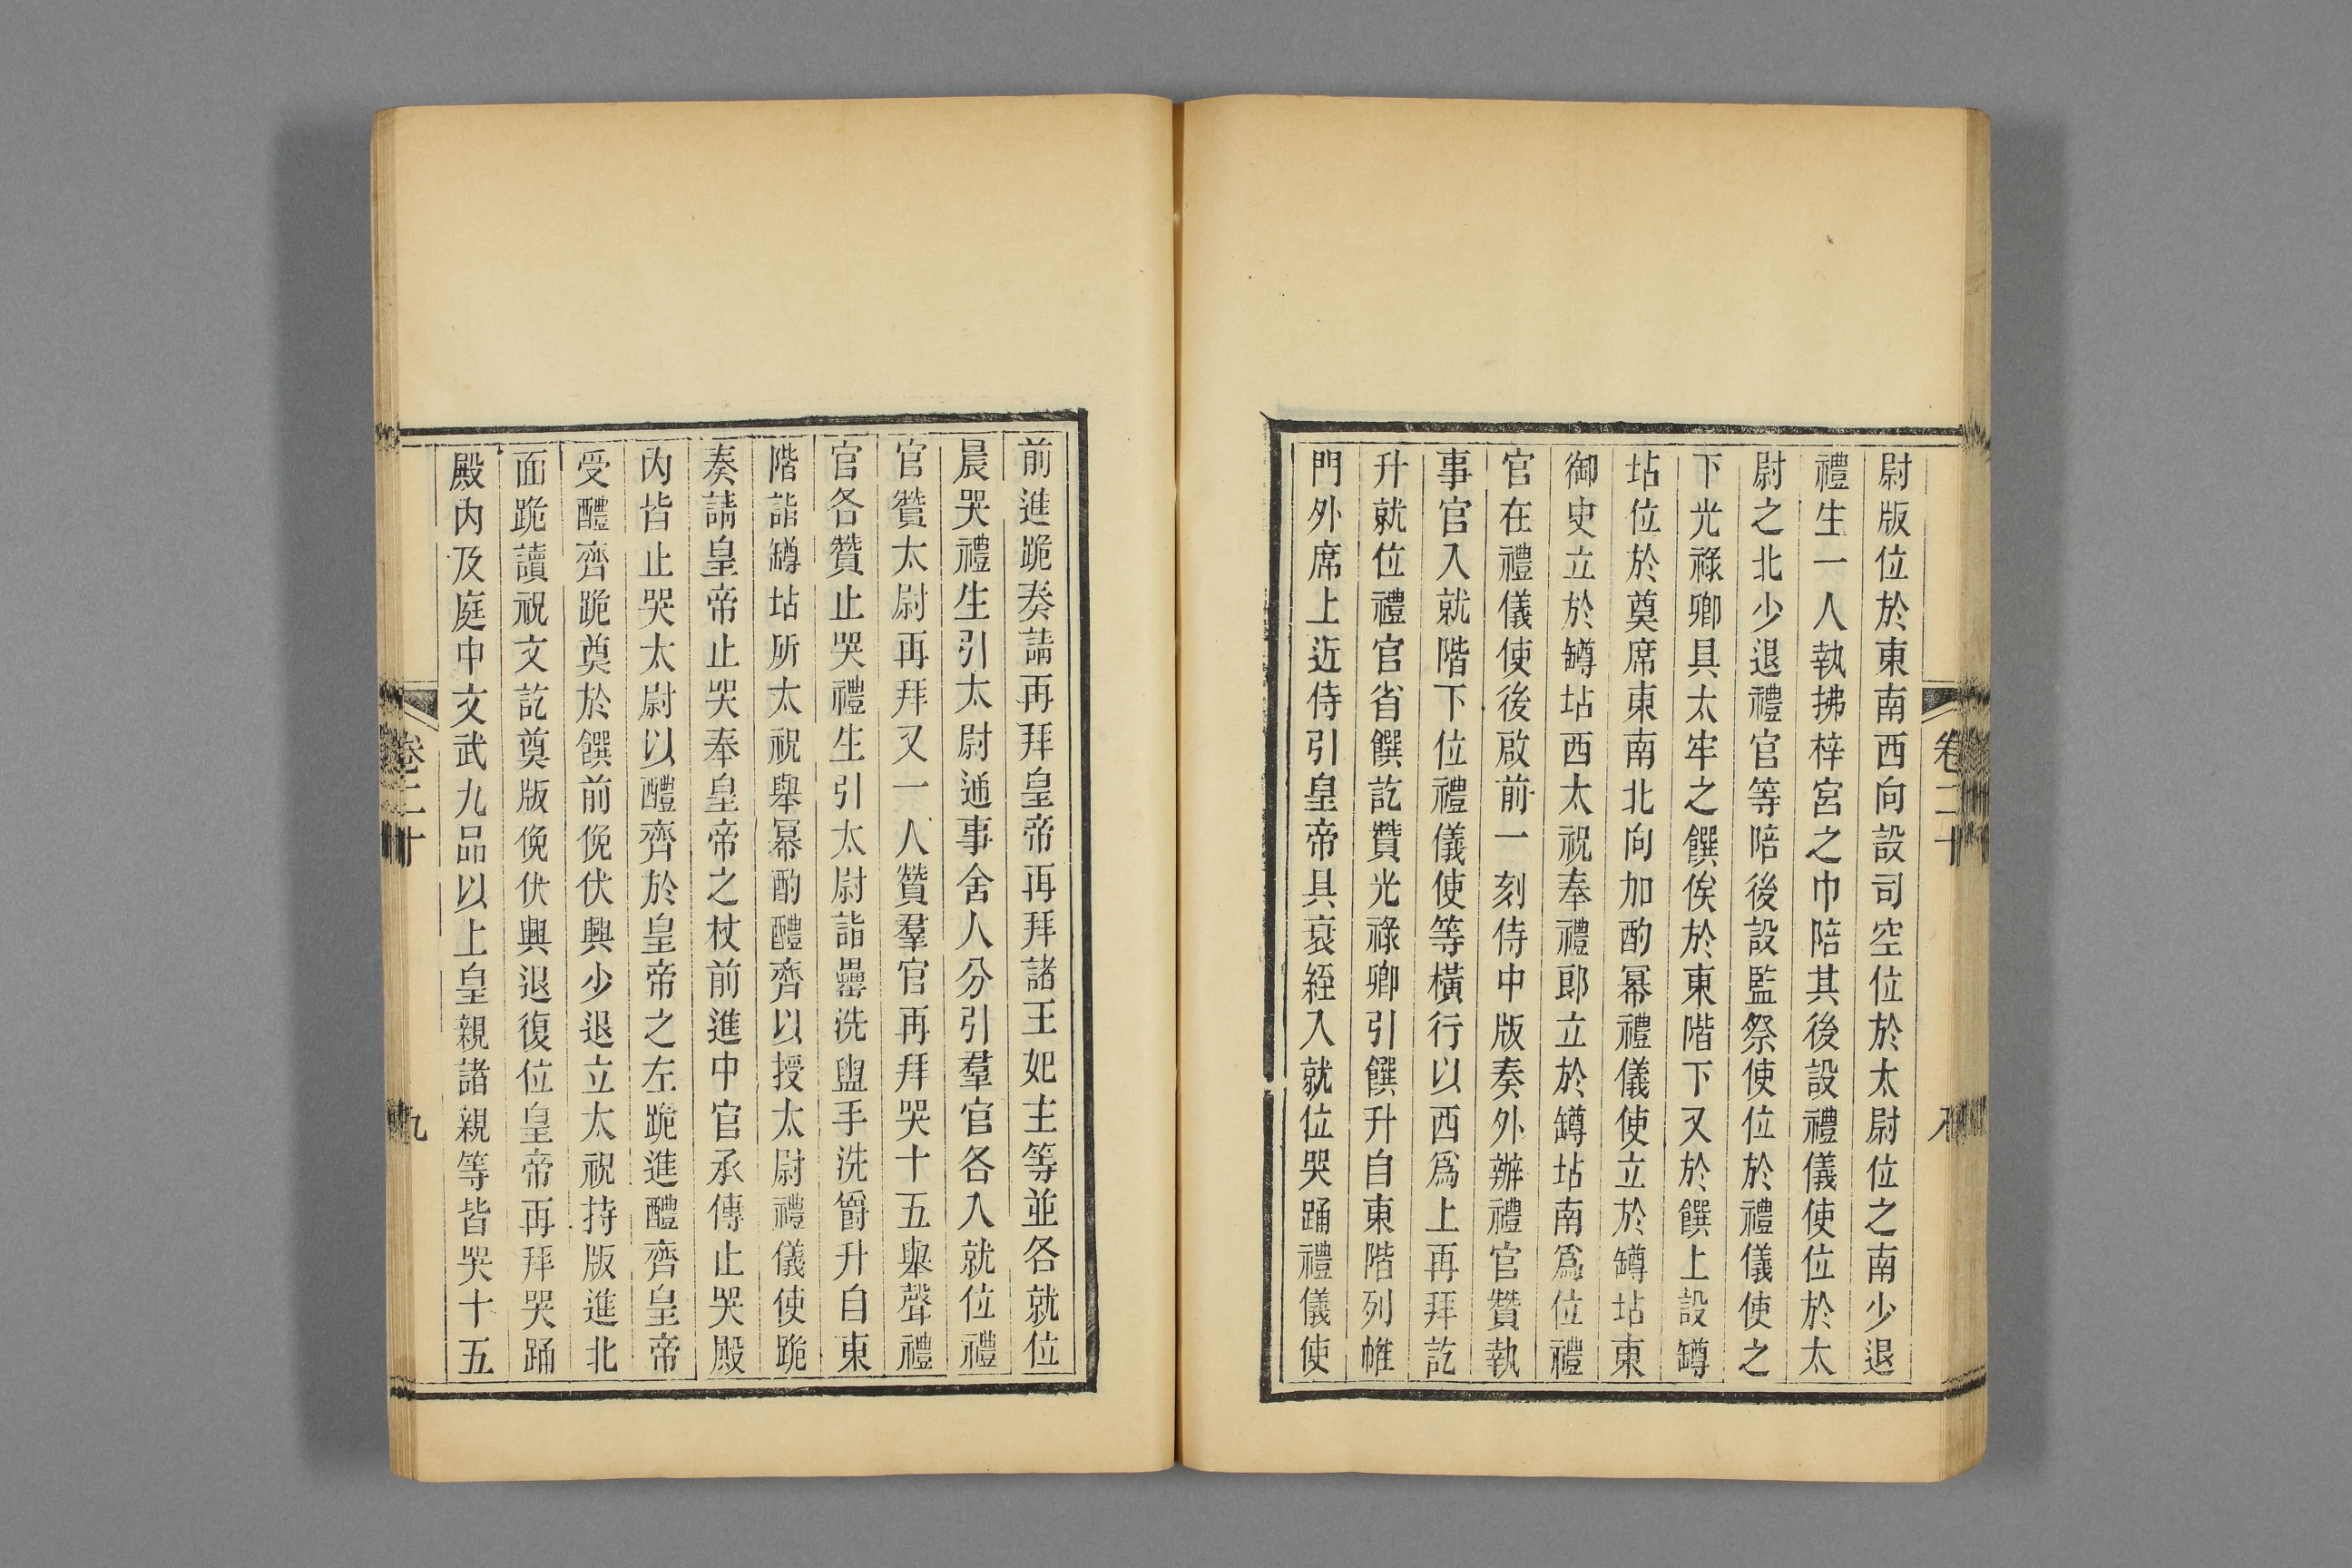 尉版位於東南西向設司空位於太尉位之南少退
禮生一人執拂梓宮之巾陪其後設禮儀使位於太
尉之北少退禮官等陪後設監祭使位於禮儀使之
下光祿卿具太牢之饌俟於東階下又於饌上設罇
坫位於奠席東南北向加酌冪禮儀使立於罇坫東
御史立於罇坫西太祝奉禮郎立於罇坫南爲位禮
官在禮儀使後啟前一刻侍中版奏外辦禮官贊執
事官入就階下位禮儀使等橫行以西爲上再拜訖
升就位禮官省饌訖贊光祿卿引饌升自東階列帷
門外席上近侍引皇帝具衰絰入就位哭踊禮儀使
卷二十
八
前進跪奏請再拜皇帝再拜諸王妃主等並各就位
晨哭禮生引太尉通事舍人分引羣官各入就位禮
官贊太尉再拜又一人贊羣官再拜哭十五舉聲禮
官各贊止哭禮生引太尉詣罍洗盥手洗爵升自東
階詣罇坫所太祝舉冪酌醴齊以授太尉禮儀使跪
奏請皇帝止哭奉皇帝之杖前進中官承傳止哭殿
內皆止哭太尉以醴齊於皇帝之左跪進醴齊皇帝
受醴齊跪奠於饌前俛伏興少退立太祝持版進北
面跪讀祝文訖奠版俛伏興退復位皇帝再拜哭踊
殿內及庭中文武九品以上皇親諸親等皆哭十五
卷二十
九